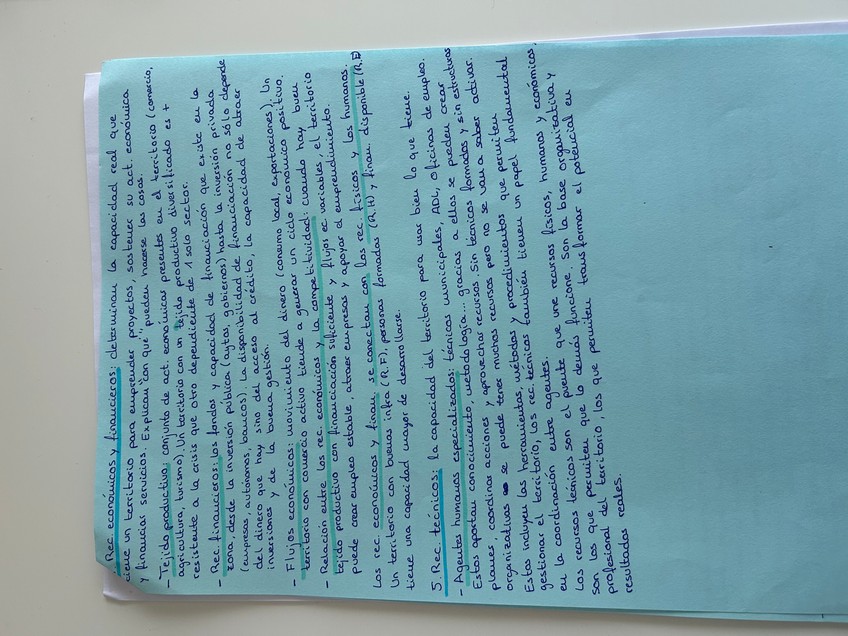 Rec. económicos y financieros: determinan la capacidad real que
tiene un territorio para emprender proyectos, sostener su act. económica
y financiar servicios. Explican "con qué" pueden hacerse las cosas.
- Tejido productivo: conjunto de act. económicas presentes en el territorio (comercio,
agricultura, turismo). Un territorio con un tejido productivo diversificado es +
resistente a la crisis que otro dependiente de 1 solo sector.
- Rec. financieros: los fondos y capacidad de financiación que existe en la
zona, desde la inversión pública (aytos, gobiernos) hasta la inversión privada
(empresas, autónomos, bancos). La disponibilidad de financiación no sólo depende
del dinero que hay sino del acceso al crédito, la capacidad de atraer
inversiones y de la buena gestión.
- Flujos económicos: movimiento del dinero (consumo local, exportaciones). Un
territorio con comercio activo tiende a generar un ciclo económico positivo.
- Relación entre los rec. económicos y la competitividad: cuando hay buen
tejido productivo con financiación suficiente y flujos ec. variables, el territorio
puede crear empleo estable, atraer empresas y apoyar el emprendimiento.
Los rec. económicos y finan. se conectan con los rec. físicos y los humanos.
Un territorio con buenas infra (R.F), personas formadas (R.H) y finan. disponible (R.E)
tiene una capacidad mayor de desarrollarse.
5. Rec. técnicos: la capacidad del territorio para usar bien lo que tiene.
- Agentes humanos especializados: técnicos municipales, ADL, oficinas de empleo.
Estos aportan conocimiento, metodología... gracias a ellos se pueden crear
planes, coordinar acciones y aprovechar recursos. Sin técnicos formados y sin estructuras
organizativas se puede tener muchos recursos pero no se van a saber activar.
Estos incluyen las herramientas, métodos y procedimientos que permiten
gestionar el territorio, los rec. técnicos también tienen un papel fundamental
en la coordinación entre agentes.
Los recursos técnicos son el puente que une recursos físicos, humanos y económicos,
son los que permiten que lo demás funcione. Son la base organizativa y
profesional del territorio, los que permiten transformar el potencial en
resultados reales.